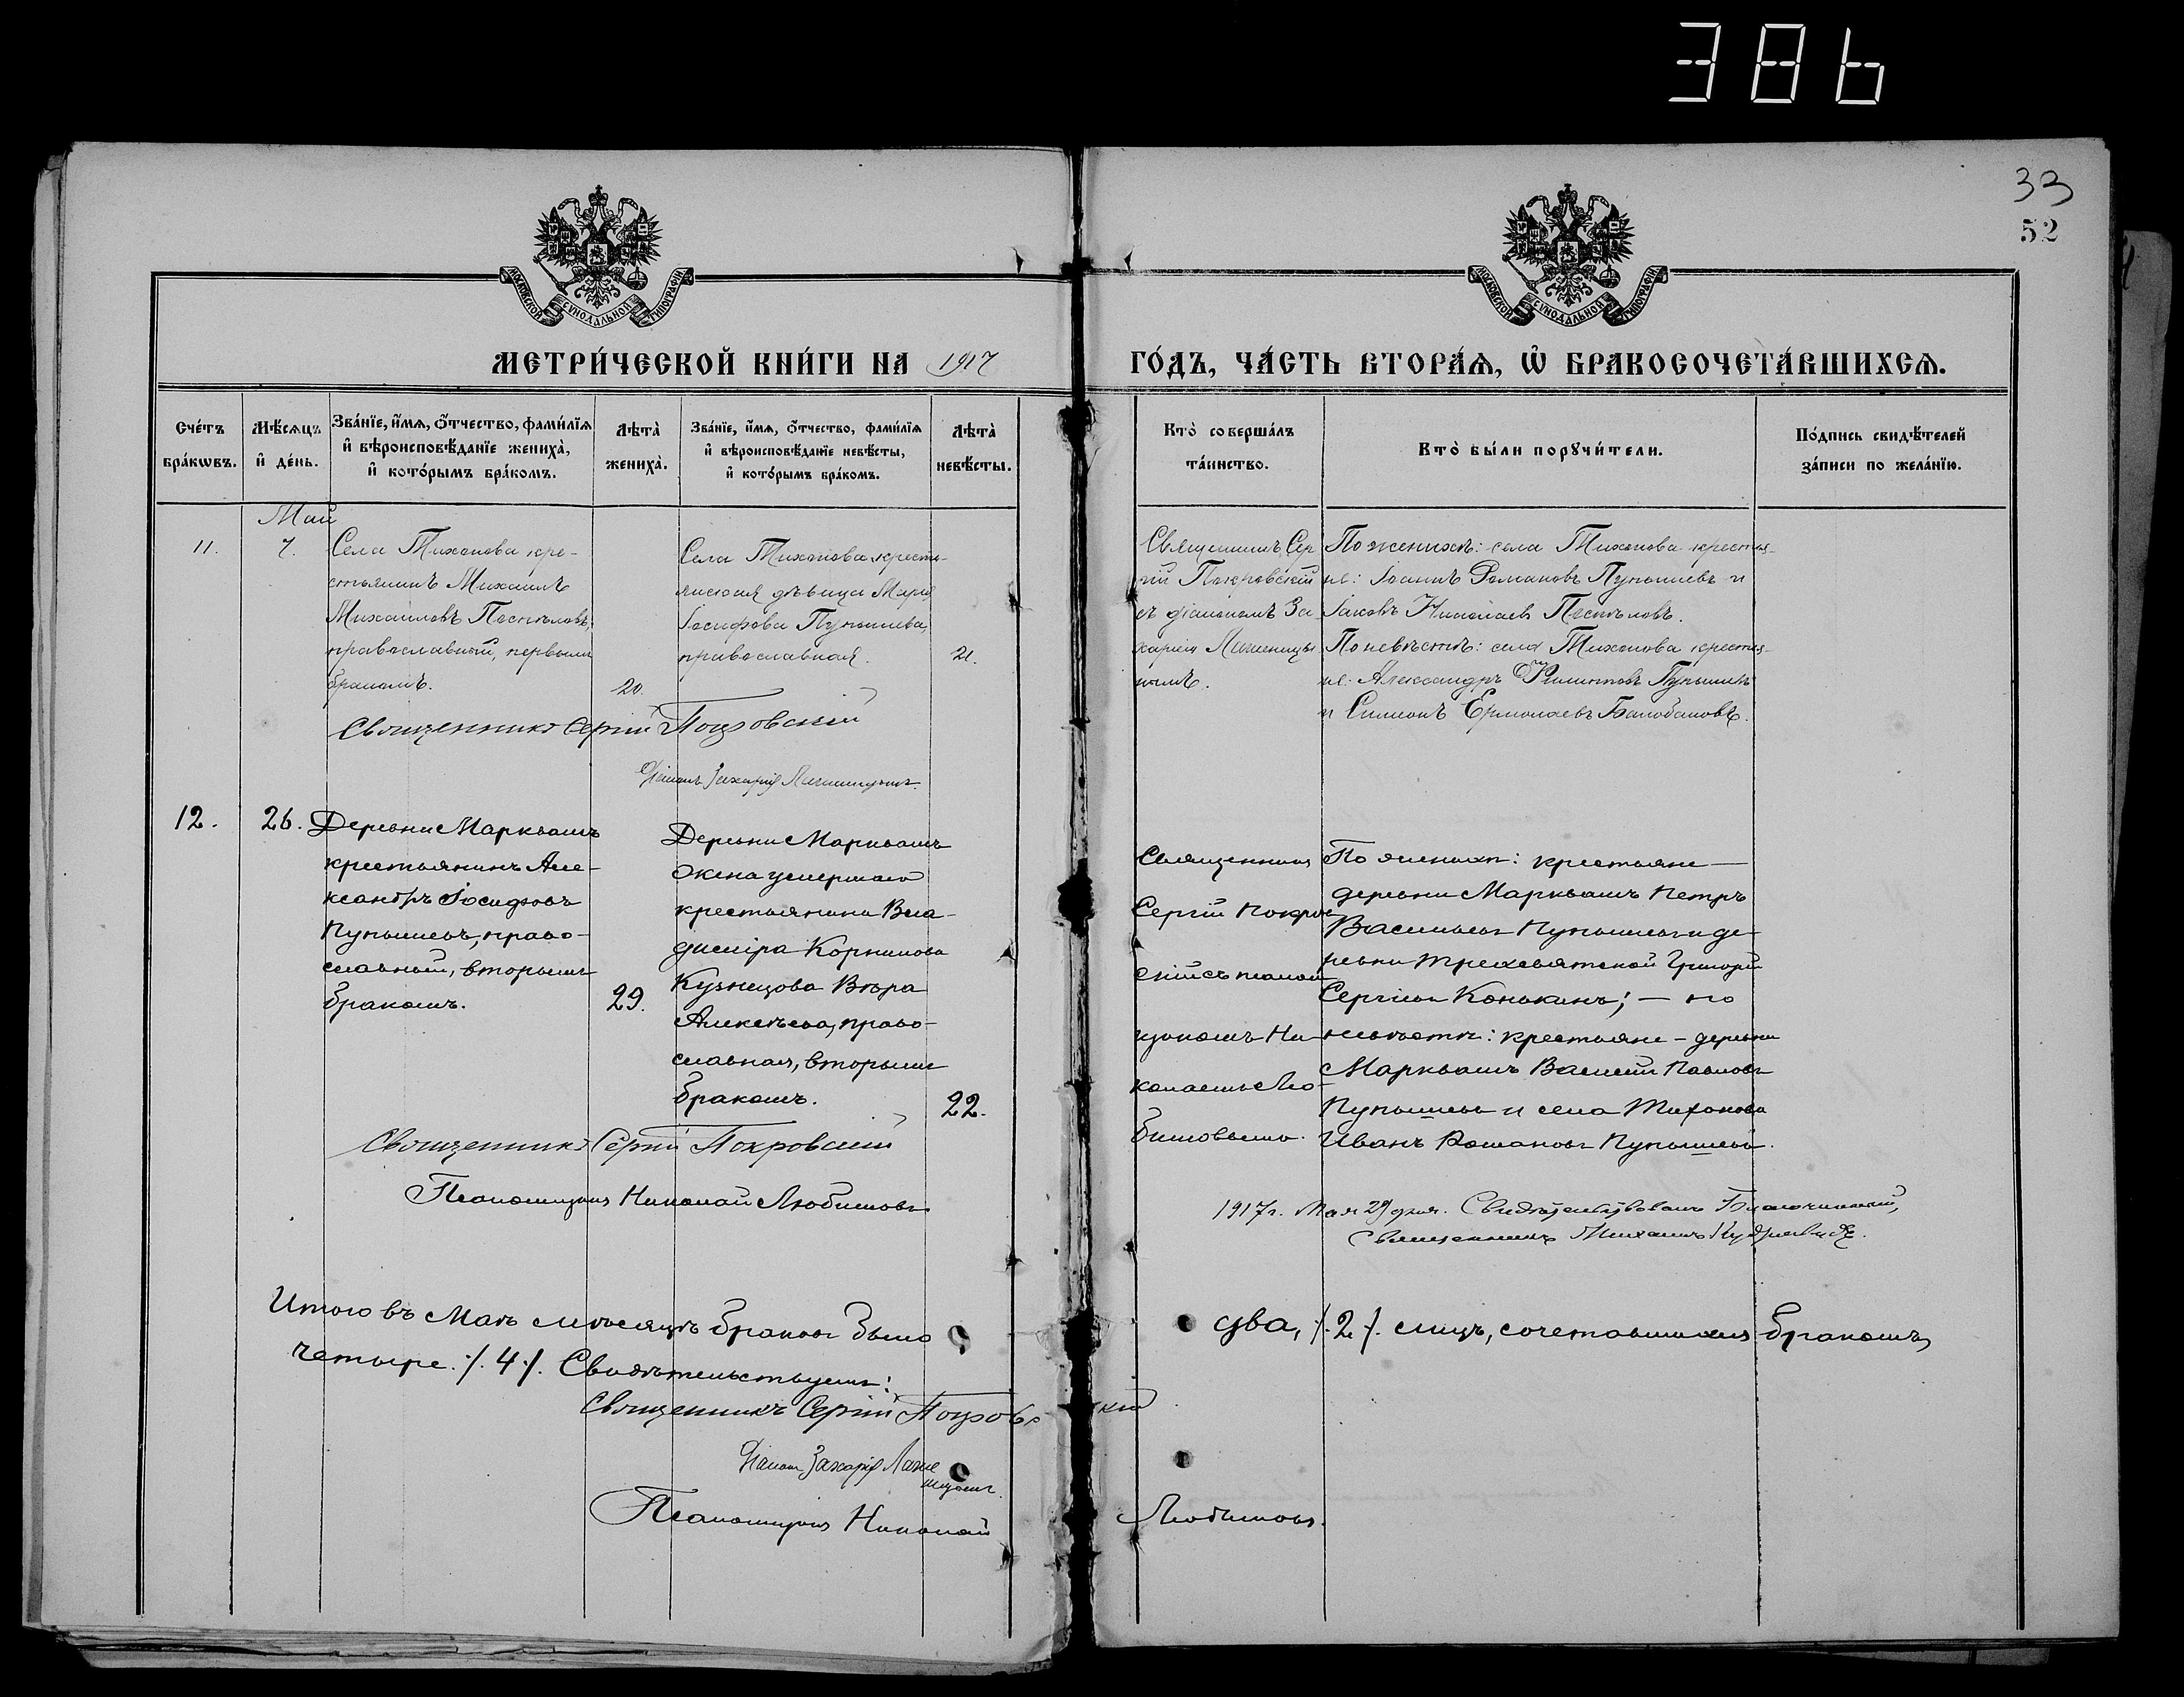 386
33
52
МОСКОВСКОЙ СѴНОДАЛЬНОЙ ТИПОГРАФІИ
МОСКОВСКОЙ СѴНОДАЛЬНОЙ ТИПОГРАФІИ
МЕТРИ́ЧЕСКОЙ КНИ́ГИ НА 1917
ГО́ДЪ, ЧА́СТЬ ВТОРА́Ѧ, Ѽ БРАКОСОЧЕТА́ВШИХСѦ.
Сче́тъ
бра́кѡвъ.
Мѣ́сѧцъ
и҆ де́нь.
Зва́нїе, и҆́мѧ, ѻ҆́тчество, фами́лїѧ
и҆ вѣроисповѣ́данїе жениха̀,
и҆ кото́рымъ бра́комъ.
Лѣта̀
жениха̀.
Зва́нїе, и҆́мѧ, ѻ҆́тчество, фами́лїѧ
и҆ вѣроисповѣ́данїе невѣ́сты,
и҆ кото́рымъ бра́комъ.
Лѣта̀
невѣ́сты.
Кто̀ соверша́лъ
та́инство.
Кто̀ бы́ли порꙋчи́тели.
По́дпись свидѣ́телей
за́писи по жела́нїю.
Май
11.
7.
Села Тихонова кре-
стьянинъ Михаилъ
Михаиловъ Поспѣловъ,
православный, первымъ
бракомъ.
20.
Села Тихонова крестья-
янская дѣвица Марія
Іосифова Пупышева,
православная.
21.
Священникъ Сер
гій Покровскій
съ діакономъ За
харіею
По женихѣ: села Тихонова крестья-
не: Іоаннъ Романовъ Пупышевъ и
Іаковъ Николаевъ Поспѣловъ.
По невѣстѣ: села Тихонова крестья-
не: Александръ Филиповъ Пупышевъ
и Симеонъ Ермолаевъ Балобановъ.
Священникъ Сергій Покровскій
Діаконъ Захарія
12.
26.
Деревни Марквашъ
крестьянинъ Але-
ксандръ Іосифовъ
Пупышевъ, право-
славный, вторымъ
бракомъ.
29.
Деревни Марквашъ
жена умершаго
крестьянина Вла-
диміра Корнилова
Кузнецова Вѣра
Алексѣева, право-
славная, вторымъ
бракомъ.
22.
Священникъ
Сергій Покров
скій съ псалом
щикомъ Ни-
колаемъ Лю-
бимовымъ.
По женихѣ: крестьяне —
деревни Марквашъ Петръ
Васильевъ Пупышевъ и де-
ревни Трехсвятской Григорій
Сергіевъ Конькинъ; — по
невѣстѣ: крестьяне - деревни
Марквашъ Василій Павловъ
Пупышевъ и села Тихонова
Иванъ Романовъ Пупышевъ.
Священникъ Сергій Покровскій
Псаломщикъ Николай Любимовъ
1917 г. Мая 29 дня. Свидѣтельствовалъ Благочинный,
Священникъ Михаилъ
Итого въ Маѣ мѣсяцѣ браковъ было два, /. 2 /. лицъ, сочетавшихся бракомъ,
четыре. /. 4 /. Свидѣтельствуемъ:
Священникъ Сергій Покровскій
Діаконъ Захарія
Псаломщикъ Николай Любимовъ.